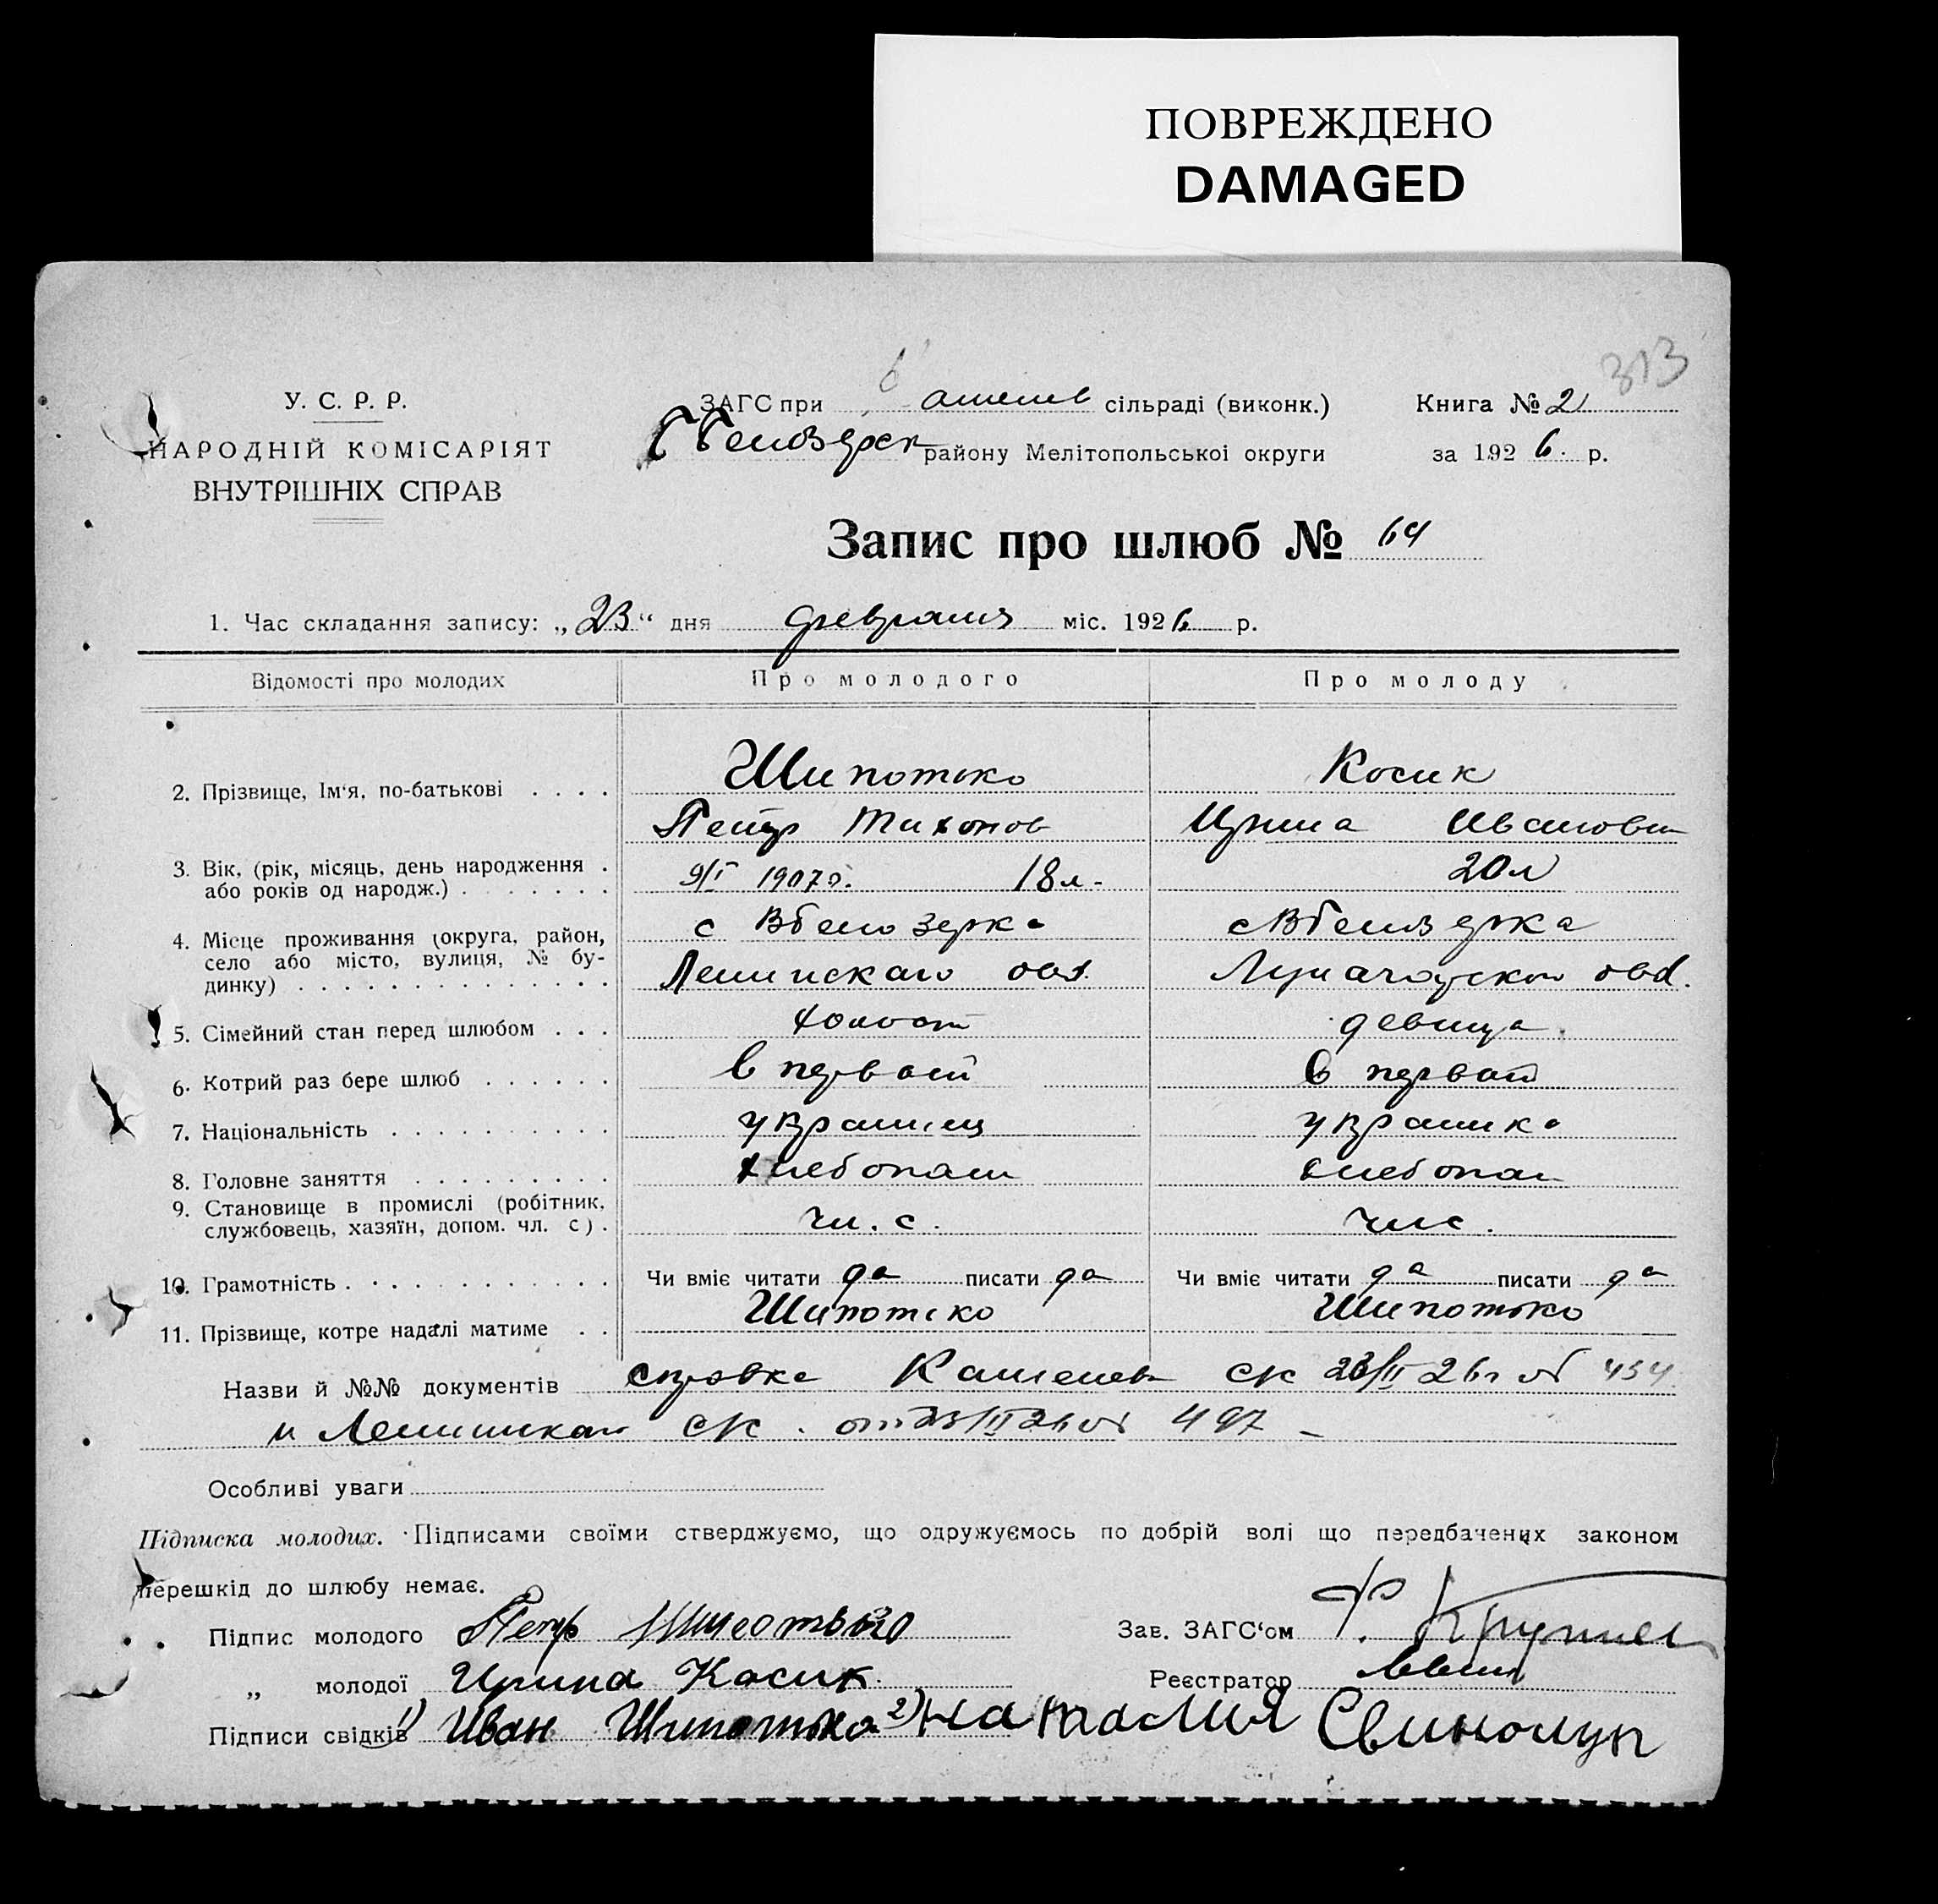 ПОВРЕЖДЕНО
DAMAGED
313
У. С. Р. Р.
НАРОДНІЙ КОМІСАРІЯТ
ВНУТРІШНІХ СПРАВ
ЗАГС при сільраді (виконк.)
району Мелітопольської округи
Книга № 2
за 1926 р.
Запис про шлюб № 64
1. Час складання запису: „23“ дня февраля міс. 1926 р.
Відомості про молодих Про молодого Про молоду
2. Прізвище, Ім'я, по-батькові . . . . Шипотько Косик
Петр Тихонов Ирина Ивановн
3. Вік, (рік, місяць, день народження .
або років од народж.) . . . . . . . 9/I 1907 г. 18 л. 20 л
4. Місце проживання (округа, район,
село або місто, вулиця, № бу-
динку) . . . . . . . . . . . . . .
с Вбелозерка с Вбелозерка
Ленинскаго общ.
5. Сімейний стан перед шлюбом . . . холост девица
6. Котрий раз бере шлюб . . . . . . в первый в первый
7. Національність . . . . . . . . . . украинец украинка
8. Головне заняття . . . . . . . . . хлебопаш хлебопаш
9. Становище в промислі (робітник,
службовець, хазяїн, допом. чл. с) . чл. с. чл с.
10. Грамотність . . . . . . . . . . . Чи вміє читати да писати да Чи вміє читати да писати да
11. Прізвище, котре надалі матиме . . Шипотько Шипотько
Назви й №№ документів справка ск 23/II 26 г № 454
и Ленинской ск. от 23/II 26 № 497
Особливі уваги
Підписка молодих. Підписами своїми стверджуємо, що одружуємось по добрій волі що передбачених законом
перешкід до шлюбу немає.
Підпис молодого Петр Шипотько
Зав. ЗАГС'ом
„ молодої Ирина Косик.
Реєстратор
Підписи свідків 1) Иван Шипотько 2) Наталия Свинолуп